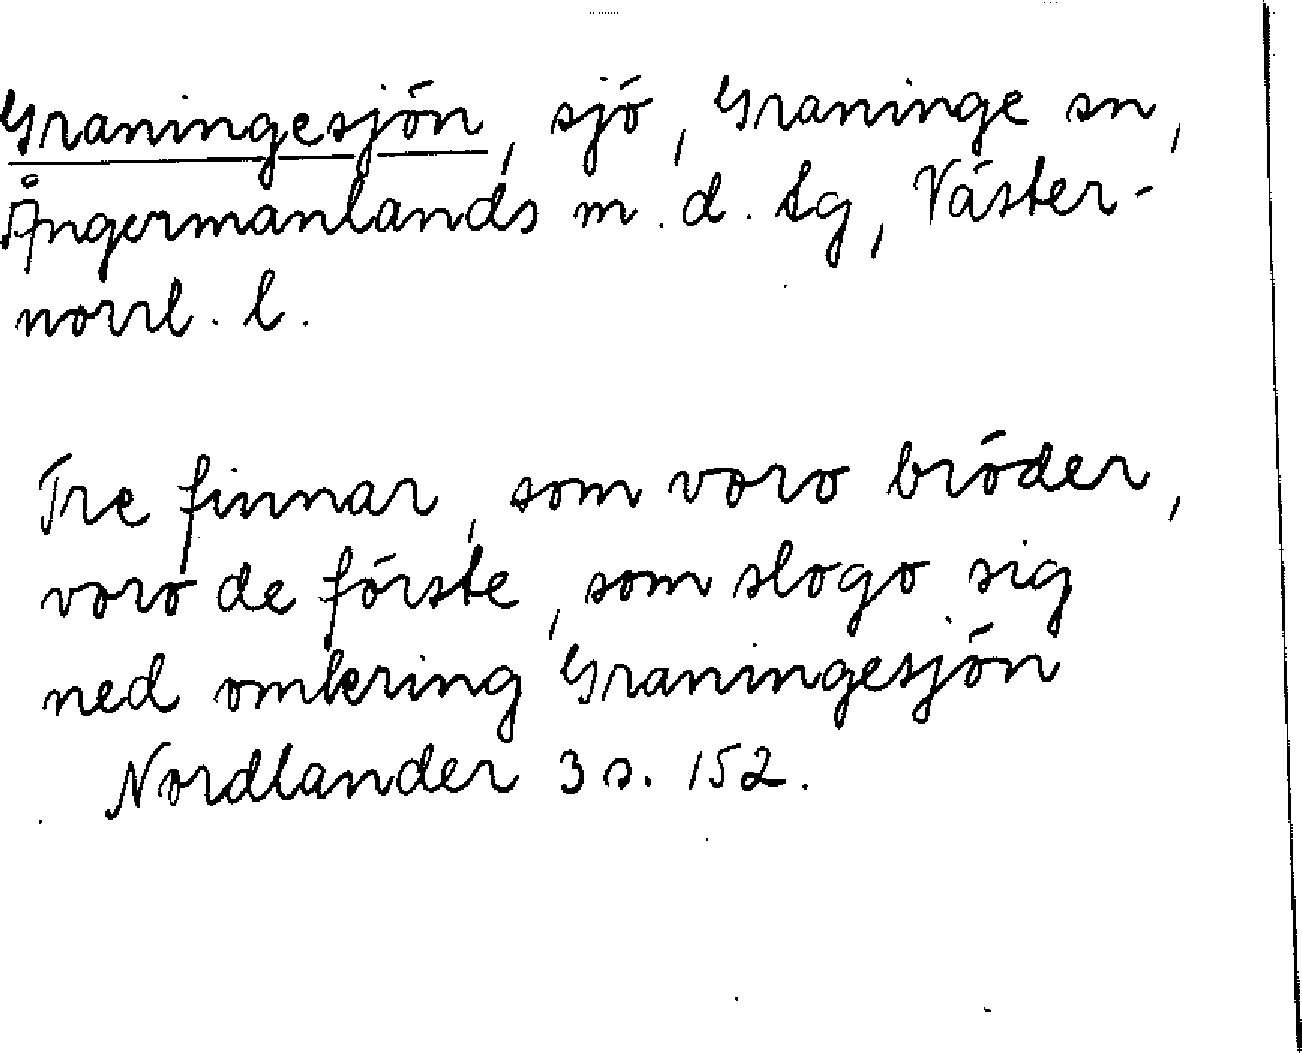 Graningesjön, sjö, Graninge sn,
Ångermanlands m. d. tg, Väster-
norrl. l.
Tre finnar, som voro bröder,
voro de förste, som slogo sig
ned omkring Graningesjön
Nordlander 3 s. 152.